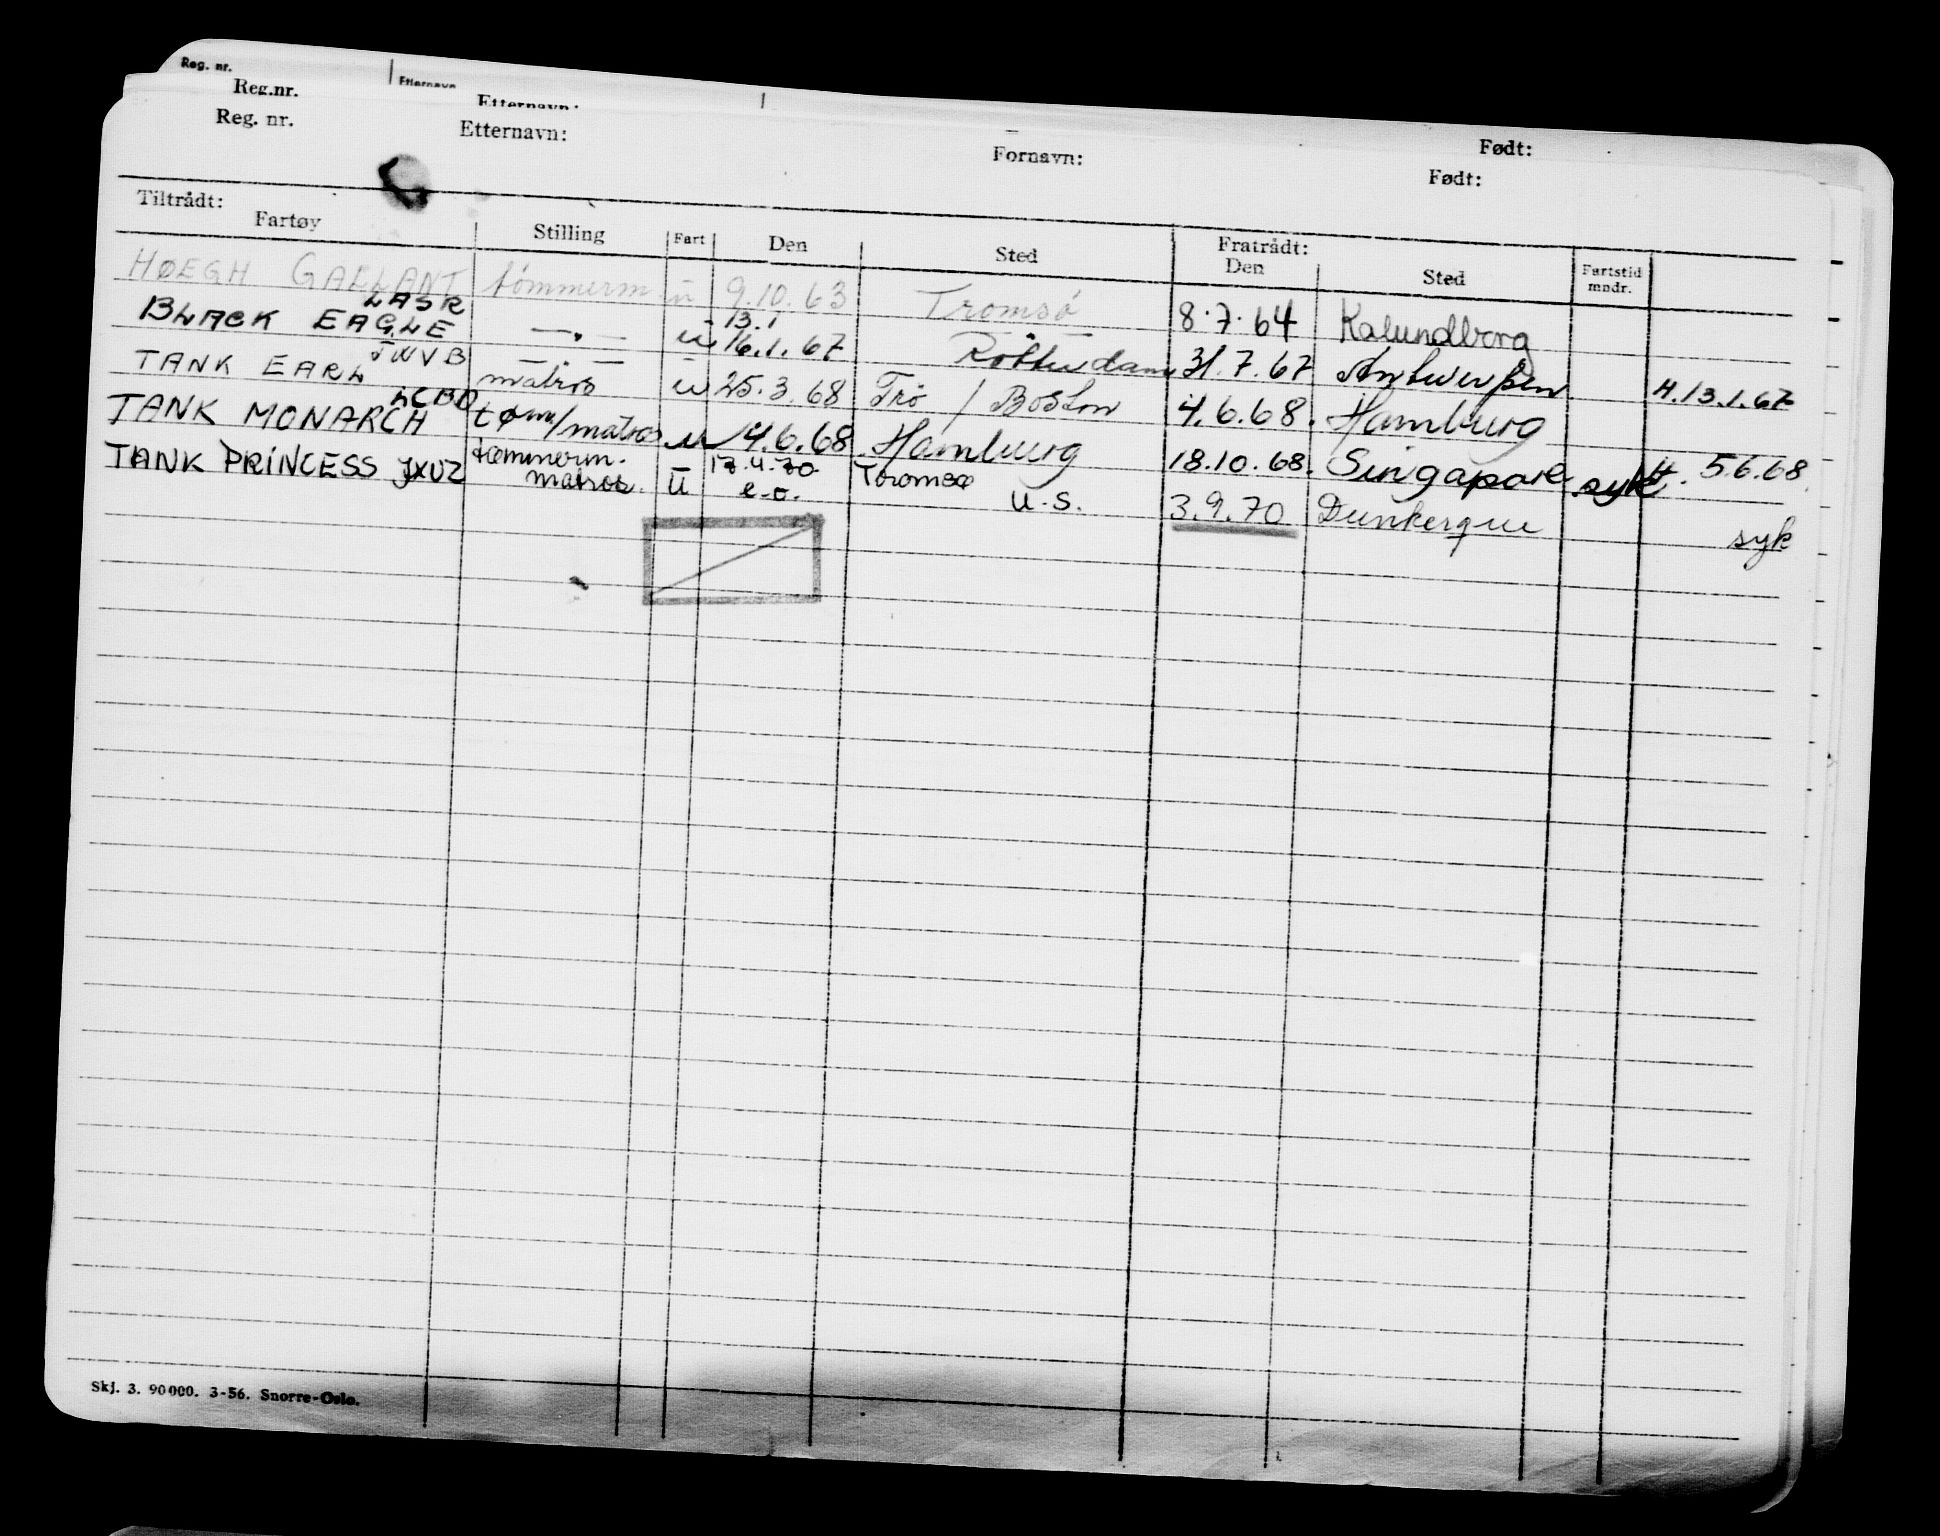 Reg. nr. Etternavn
Reg.nr. Etternavn: Født:
Reg. nr. Etternavn: Fornavn: Født:
Tiltrådt: Fratrådt:
Fartøy Stilling Fart Den Sted Den Sted Fartstid mndr.
HØEGH GALLANT tømmerm u 9.10.63 Tromsø 8.7.64 Kalundborg
LASR 13.1
BLACK EAGLE — " — u 16.1.67 Rotterdam 31.7.67 Antwerpen H.13.1.67
JWVB
TANK EARL matros u 25.3.68 Trø / Boston 4.6.68. Hamburg
LCBD
TANK MONARCH tømm/matros u 4.6.68 Hamburg 18.10.68. Singapore syk H. 5.6.68.
TANK PRINCESS JXUZ tømmerm. matros. U 17.4.70 Tromsø
e.o. U.S. 3.9.70 Dunkerque syk
Skj. 3. 90000. 3-56. Snorre-Oslo.